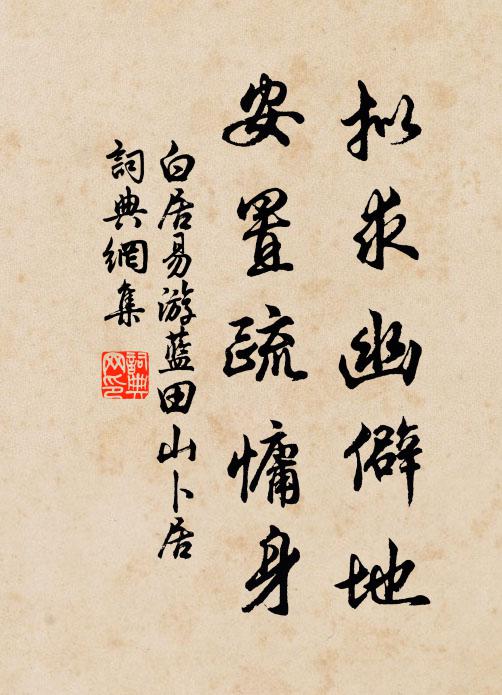 拟求幽僻地
安置疏慵身
白居易游蓝田山卜居
詞典網集
詞典網印